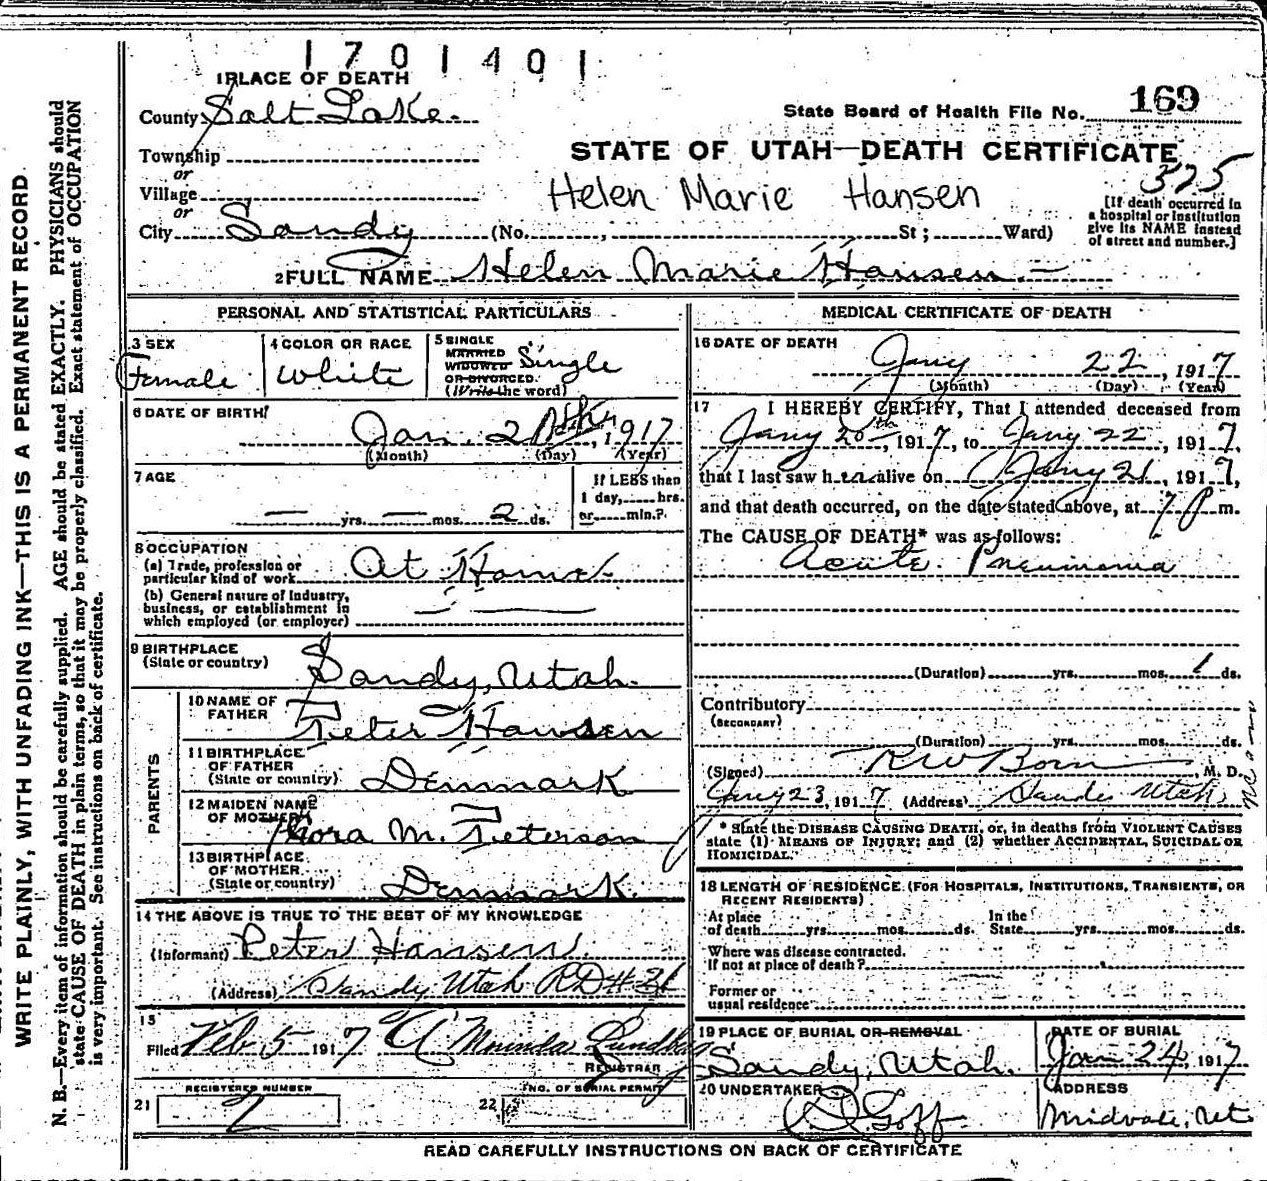 1701401
1 PLACE OF DEATH
County Salt Lake.
State Board of Health File No. 169
Township
or
STATE OF UTAH—DEATH CERTIFICATE
375
Village
or
Helen Marie Hansen
[If death occurred in
a hospital or institution
give its NAME instead
of street and number.]
City Sandy (No. , St; Ward)
2 FULL NAME Helen Marie Hansen.
PERSONAL AND STATISTICAL PARTICULARS
3 SEX
Female
4 COLOR OR RACE
White
5 SINGLE
MARRIED
WIDOWED
OR DIVORCED.
(Write the word)
Single
6 DATE OF BIRTH
Jan. 1917
(Month) (Day) (Year)
7 AGE
— yrs. — mos. 2 ds.
If LESS than
1 day, hrs.
or min.?
8 OCCUPATION
(a) Trade, profession or
particular kind of work At Home
(b) General nature of Industry,
business, or establishment in
which employed (or employer)
9 BIRTHPLACE
(State or country) Sandy, Utah.
PARENTS
10 NAME OF
FATHER Peter Hansen
11 BIRTHPLACE
OF FATHER
(State or country) Denmark
12 MAIDEN NAME
OF MOTHER Thora M. Peterson
13 BIRTHPLACE
OF MOTHER
(State or country) Denmark.
14 THE ABOVE IS TRUE TO THE BEST OF MY KNOWLEDGE
(Informant) Peter Hansen
(Address) Sandy Utah RD #
15
Filed Feb 5 1917
REGISTRAR
REGISTERED NUMBER
21 2
NO. OF BURIAL PERMIT
22
MEDICAL CERTIFICATE OF DEATH
16 DATE OF DEATH
Jany 22, 1917
(Month) (Day) (Year)
17 I HEREBY CERTIFY, That I attended deceased from
Jany 20th 1917, to Jany 22, 1917,
that I last saw her alive on Jany 21 1917,
and that death occurred, on the date stated above, at 7 P m.
The CAUSE OF DEATH* was as follows:
Acute. Pneumonia
(Duration) yrs. mos. 1 ds.
Contributory
(SECONDARY)
(Duration) yrs. mos. ds.
(Signed) , M. D.
Jany 23, 1917 (Address) Sandy Utah,
* State the DISEASE CAUSING DEATH, or, in deaths from VIOLENT CAUSES
state (1) MEANS OF INJURY; and (2) whether ACCIDENTAL, SUICIDAL OR
HOMICIDAL.
18 LENGTH OF RESIDENCE (FOR HOSPITALS, INSTITUTIONS, TRANSIENTS, OR
RECENT RESIDENTS)
At place
of death yrs. mos. ds.
In the
State yrs. mos. ds.
Where was disease contracted.
If not at place of death?
Former or
usual residence
19 PLACE OF BURIAL OR REMOVAL
Sandy, Utah.
DATE OF BURIAL
Jan 24, 1917
20 UNDERTAKER
Goff
ADDRESS
Midvale, Ut
READ CAREFULLY INSTRUCTIONS ON BACK OF CERTIFICATE
WRITE PLAINLY, WITH UNFADING INK—THIS IS A PERMANENT RECORD.
N. B.—Every item of information should be carefully supplied. AGE should be stated EXACTLY. PHYSICIANS should
state CAUSE OF DEATH in plain terms, so that it may be properly classified. Exact statement of OCCUPATION
is very important. See instructions on back of certificate.